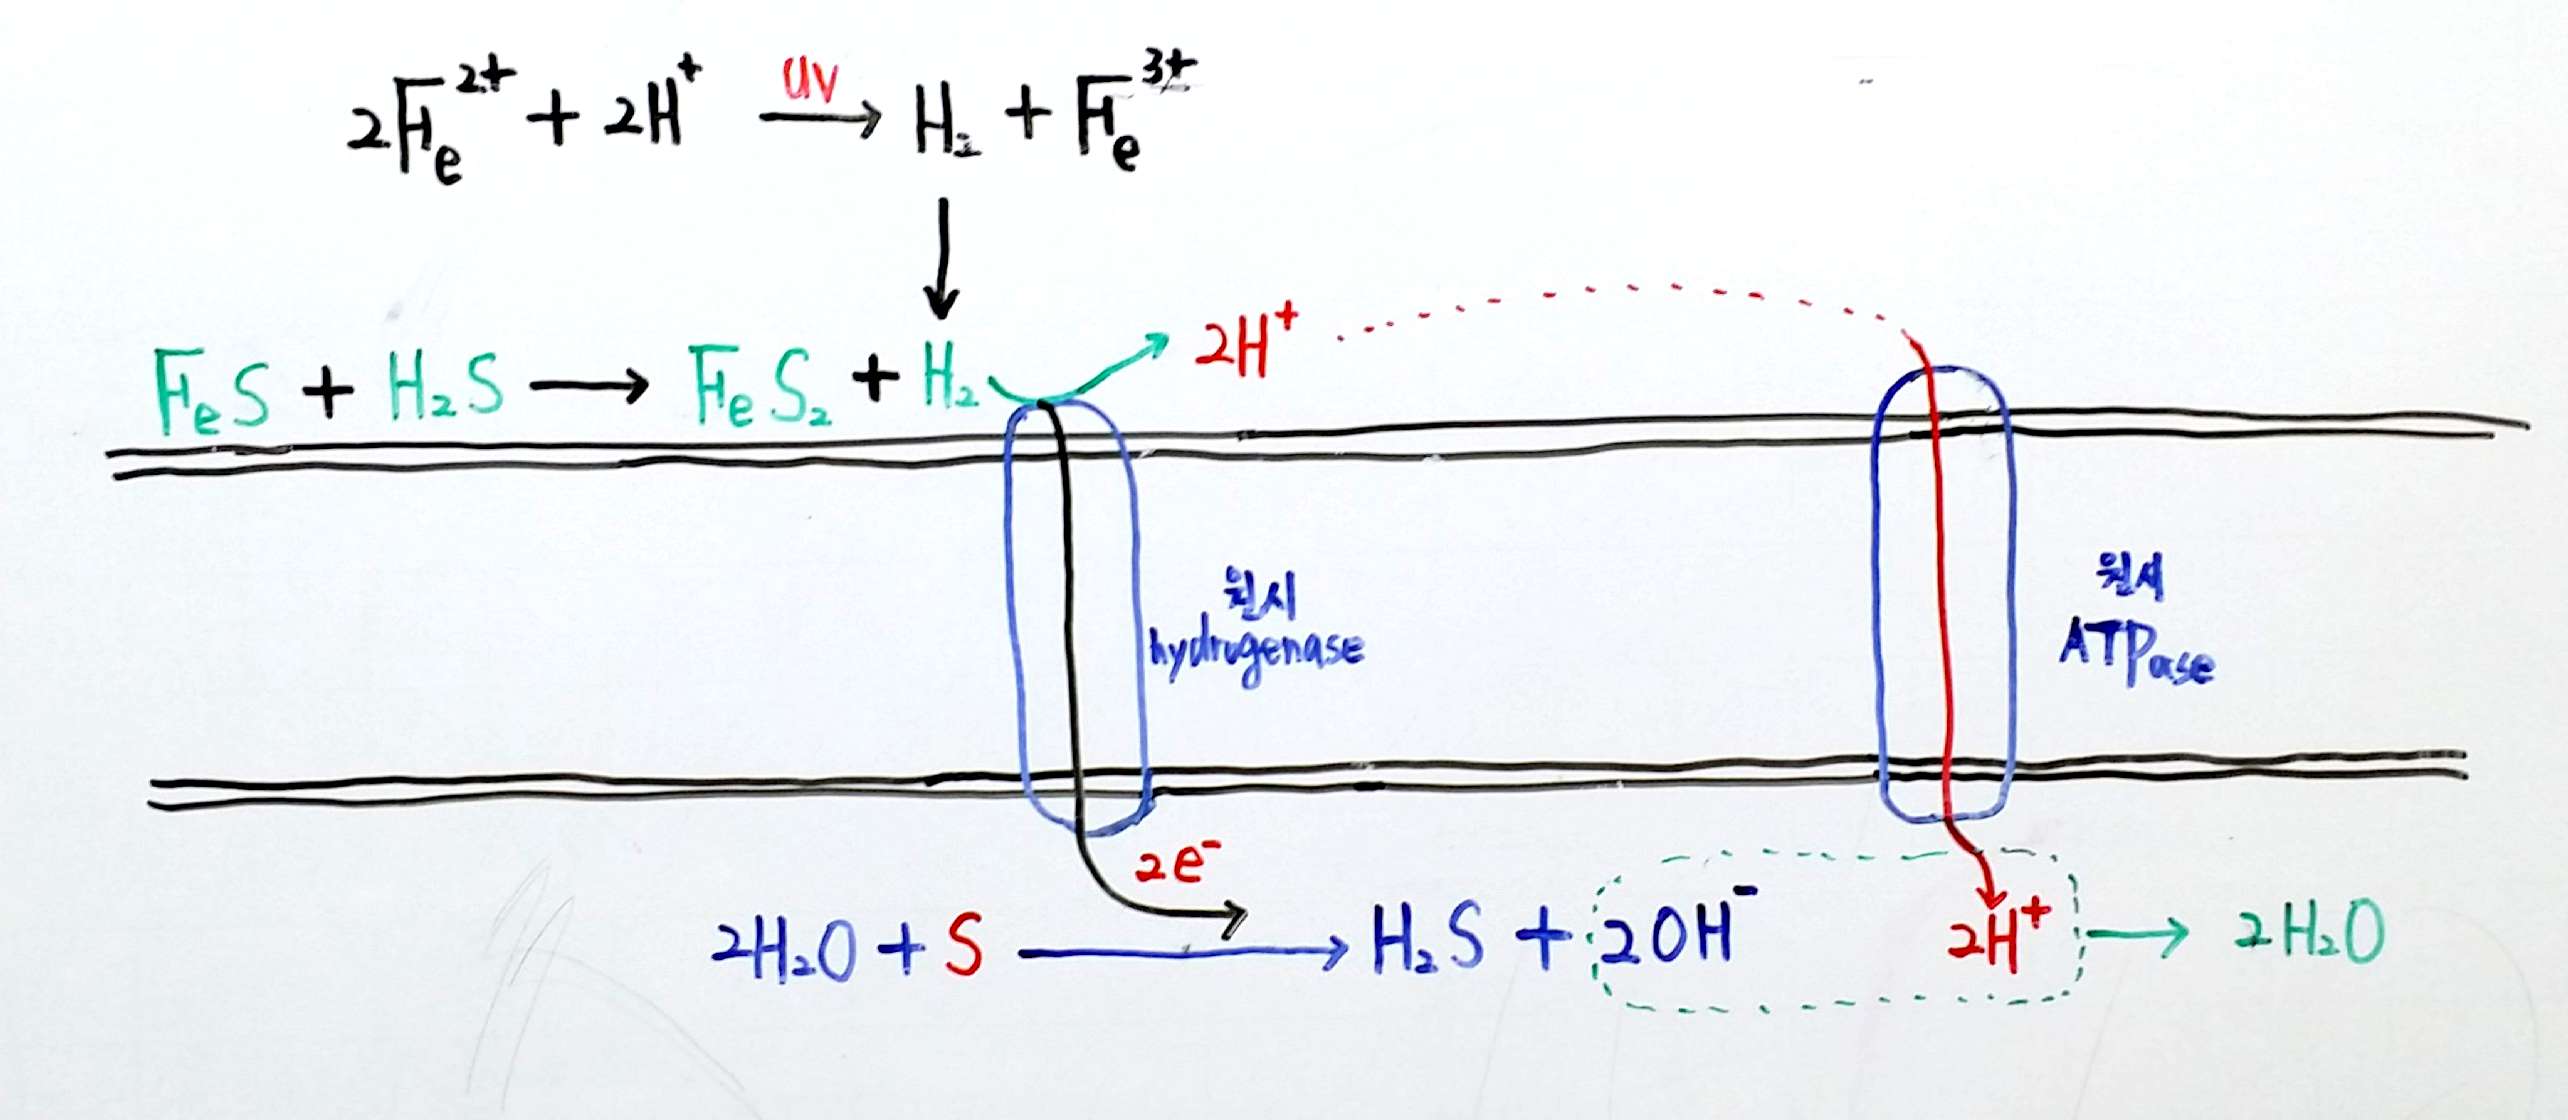 2Fe²⁺ + 2H⁺ →(UV) H₂ + Fe³⁺
FeS + H₂S → FeS₂ + H₂
2H⁺
원시
hydrogenase
원시
ATPase
2e⁻
2H₂O + S → H₂S + 2OH⁻ 2H⁺ → 2H₂O